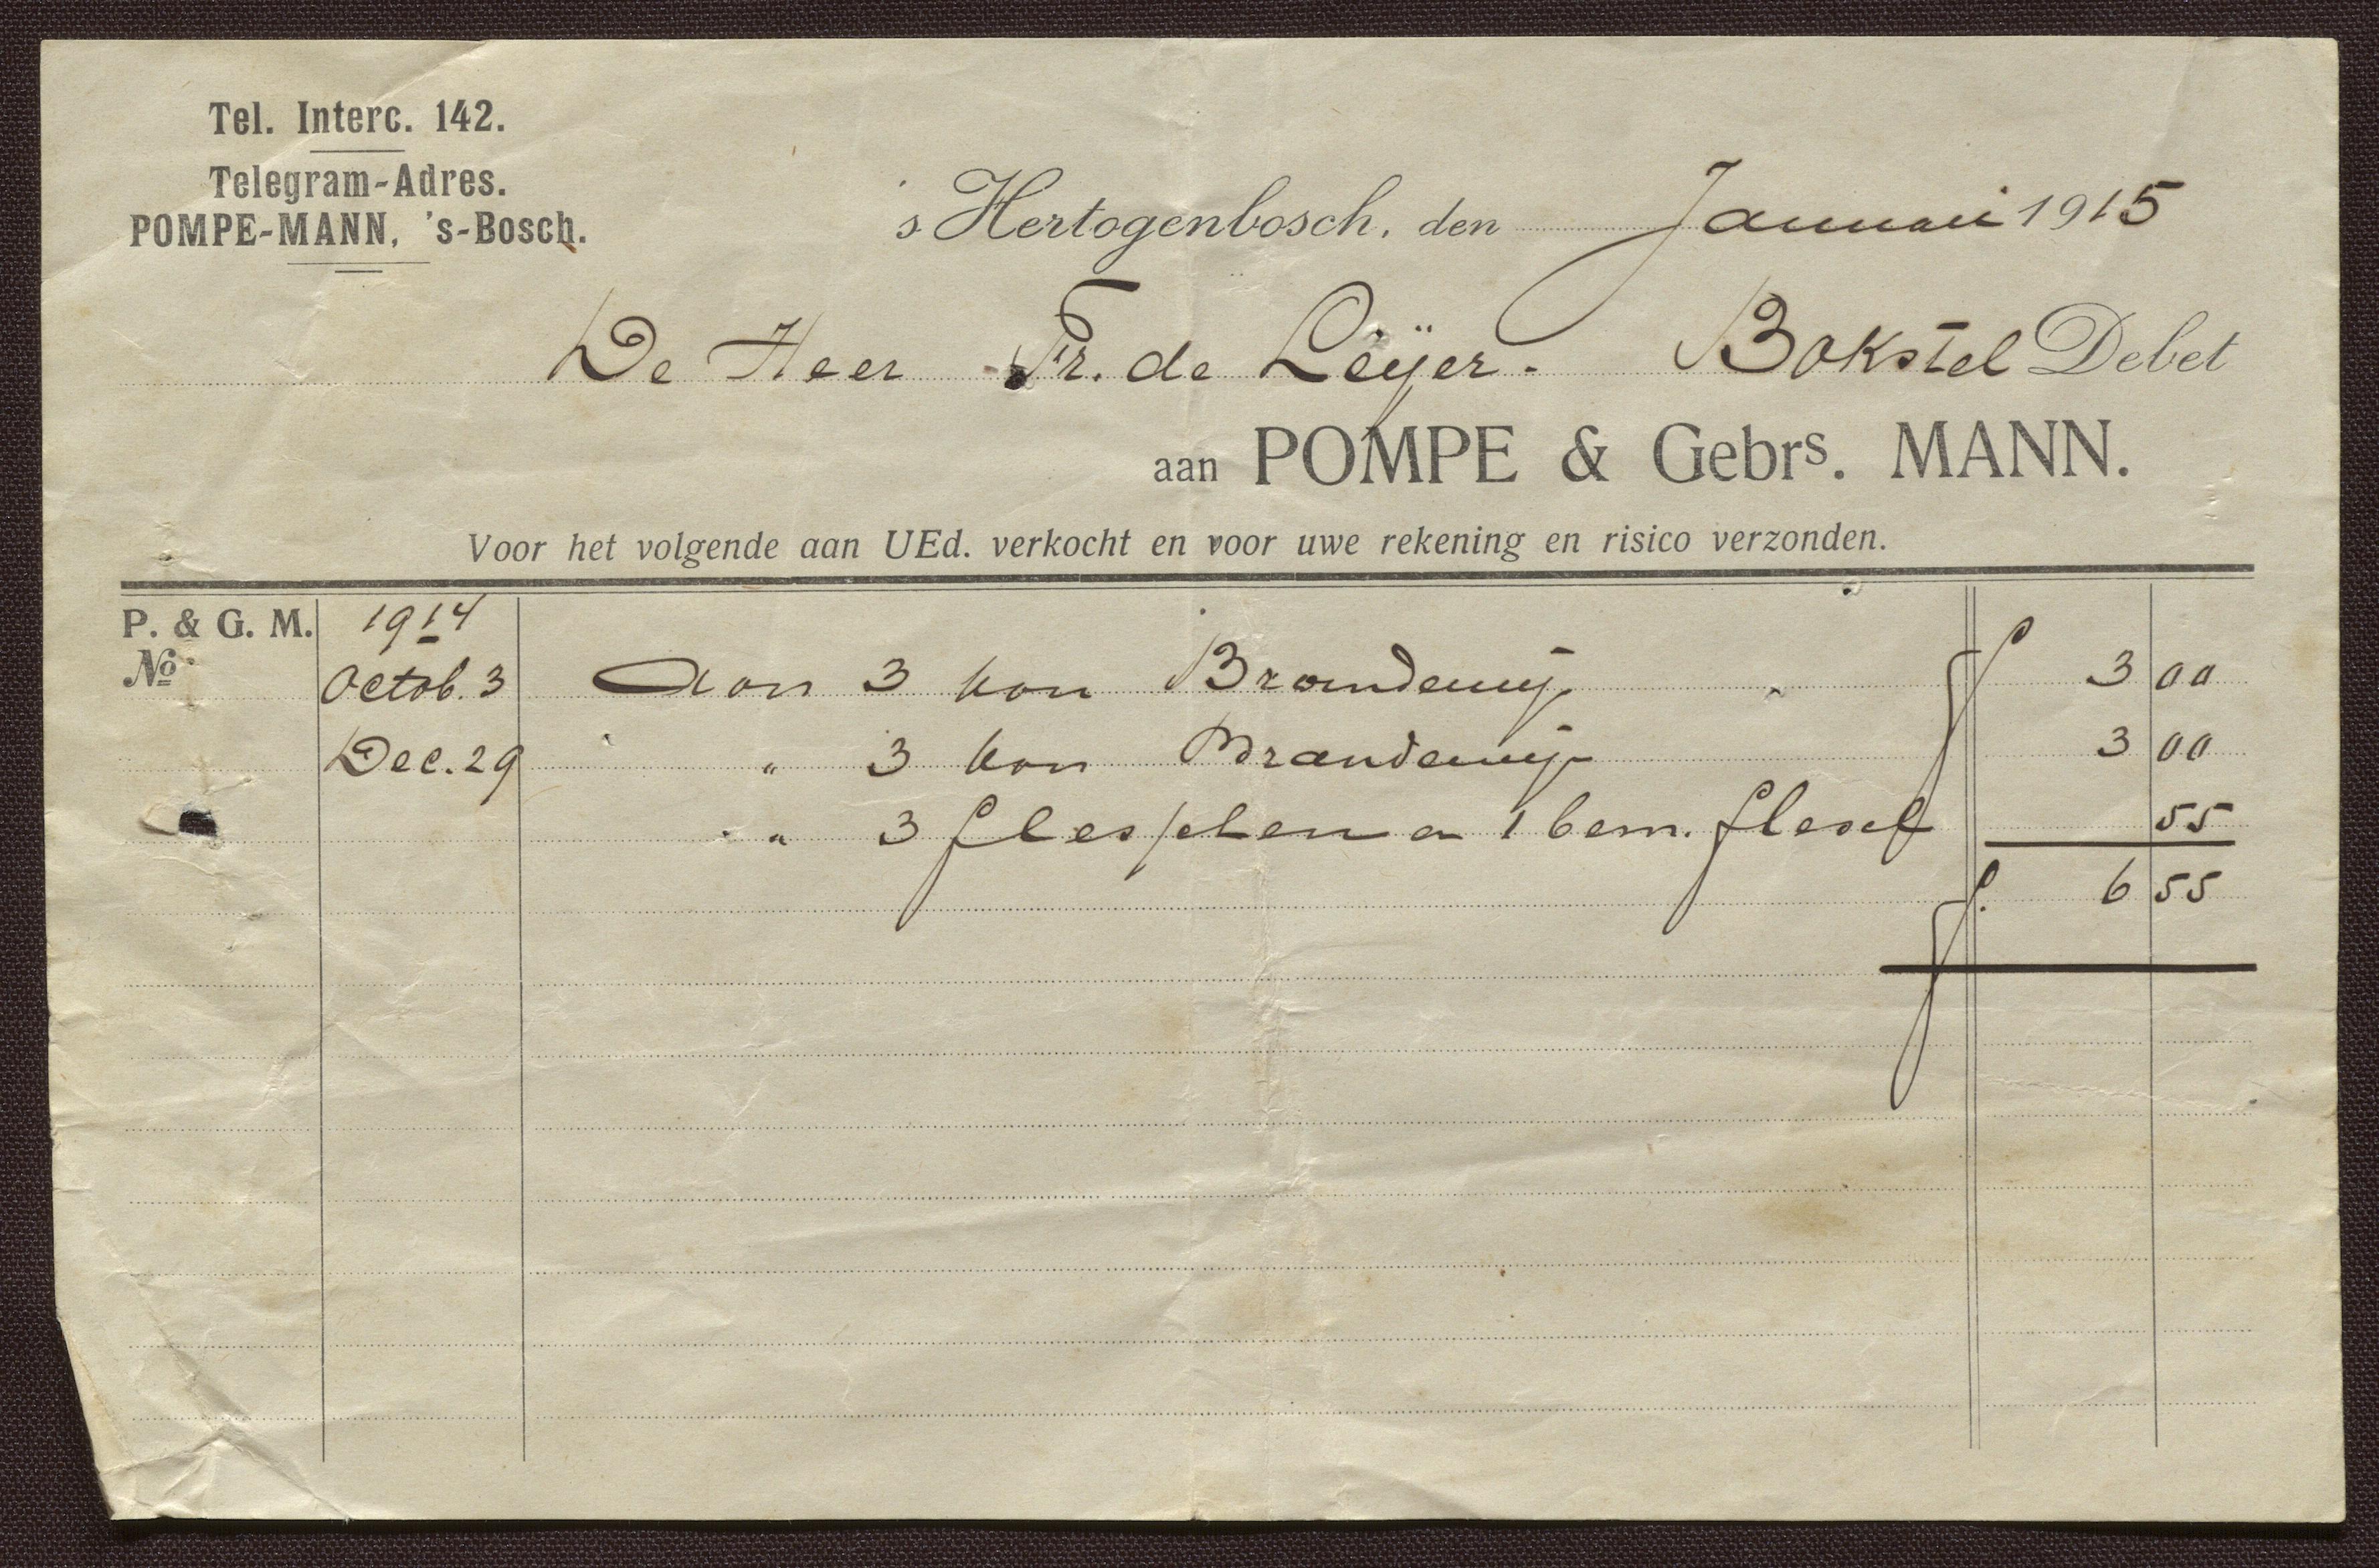 Tel. Interc. 142.
Telegram-Adres.
POMPE-MANN, 's-Bosch.
's Hertogenbosch, den Januari 1915
De Heer Fr. de Leÿer. Bokstel Debet
aan POMPE & Gebrs. MANN.
Voor het volgende aan UEd. verkocht en voor uwe rekening en risico verzonden.
P. & G. M. 1914
No. Octob. 3 Aan 3 kan Brandewijn f 3 00
Dec. 29 " 3 kan Brandewijn 3 00
" 3 flesschen en 1 bem. flesch 55
f. 6 55